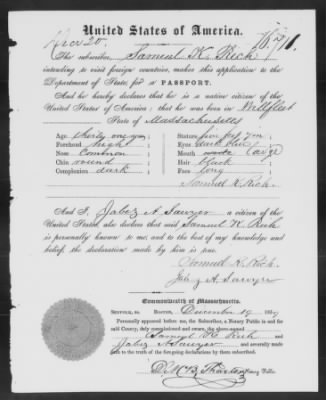 United States of America.
The subscriber, Samuel K. Rich
intending to visit foreign countries, makes this application to the
Department of State for a PASSPORT.
And he hereby declares that he is a native citizen of the
United States of America: that he was born in Wellfleet
State of Massachusetts
Age thirty one yrs Stature five feet ten
Forehead high Eyes
Nose common Mouth
Chin round Hair black
Complexion dark Face long
Samuel K. Rich
And I, Jabez A. Sawyer a citizen of the
United States also declare that said Samuel K. Rich
is personally known to me; and to the best of my knowledge and
belief, the declaration made by him is true.
Samuel K. Rich,
Jabez A. Sawyer
Commonwealth of Massachusetts.
SUFFOLK, ss. BOSTON, December 19 185
Personally appeared before me, the Subscriber, a Notary Public in and for
said County, duly commissioned and sworn, the above-named
Samuel K. Rich and
Jabez A Sawyer and severally made
oath to the truth of the foregoing declarations by them subscribed.
Notary Public